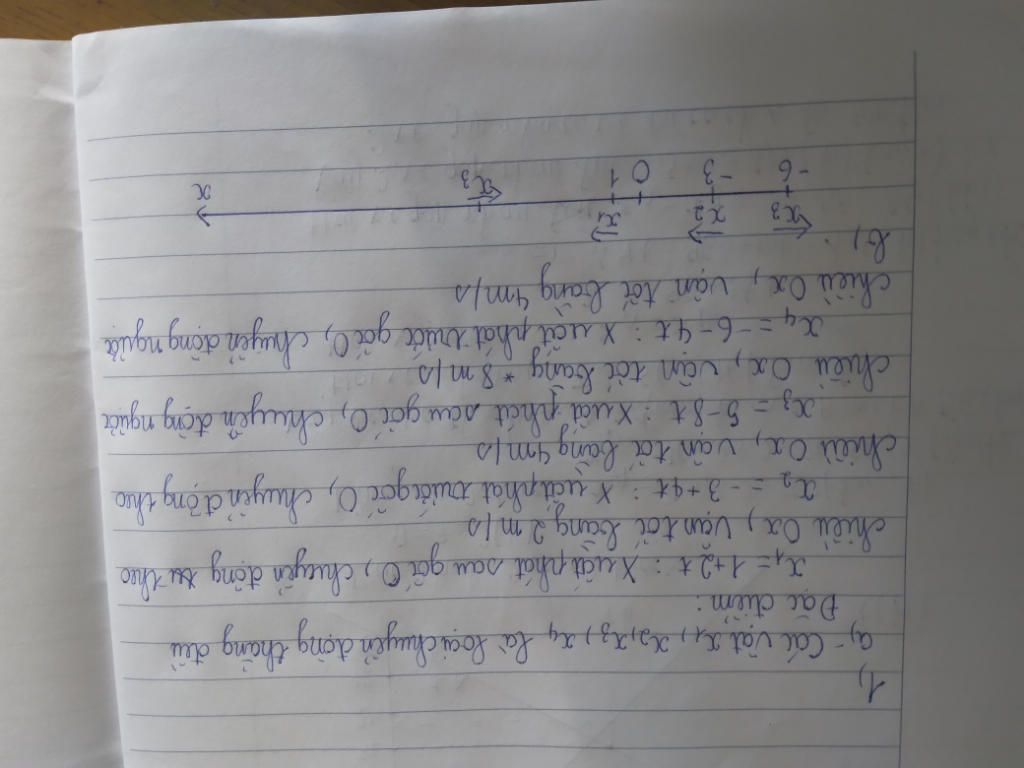 1,
a, - Các vật x₁, x₂, x₃, x₄ là loại chuyển động thẳng đều
Đặc điểm:
x₁ = 1+2t : Xuất phát sau gốc O, chuyển động theo
chiều Ox, vận tốc bằng 2 m/s
x₂ = -3+4t : Xuất phát trước gốc O, chuyển động theo
chiều Ox, vận tốc bằng 4m/s
x₃ = 5-8t : Xuất phát sau gốc O, chuyển động ngược
chiều Ox, vận tốc bằng * 8 m/s
x₄ = -6-4t : Xuất phát trước gốc O, chuyển động ngược
chiều Ox, vận tốc bằng 4m/s
b,
x₃ x₂ x₁
-6 -3 0 1 x₃ x